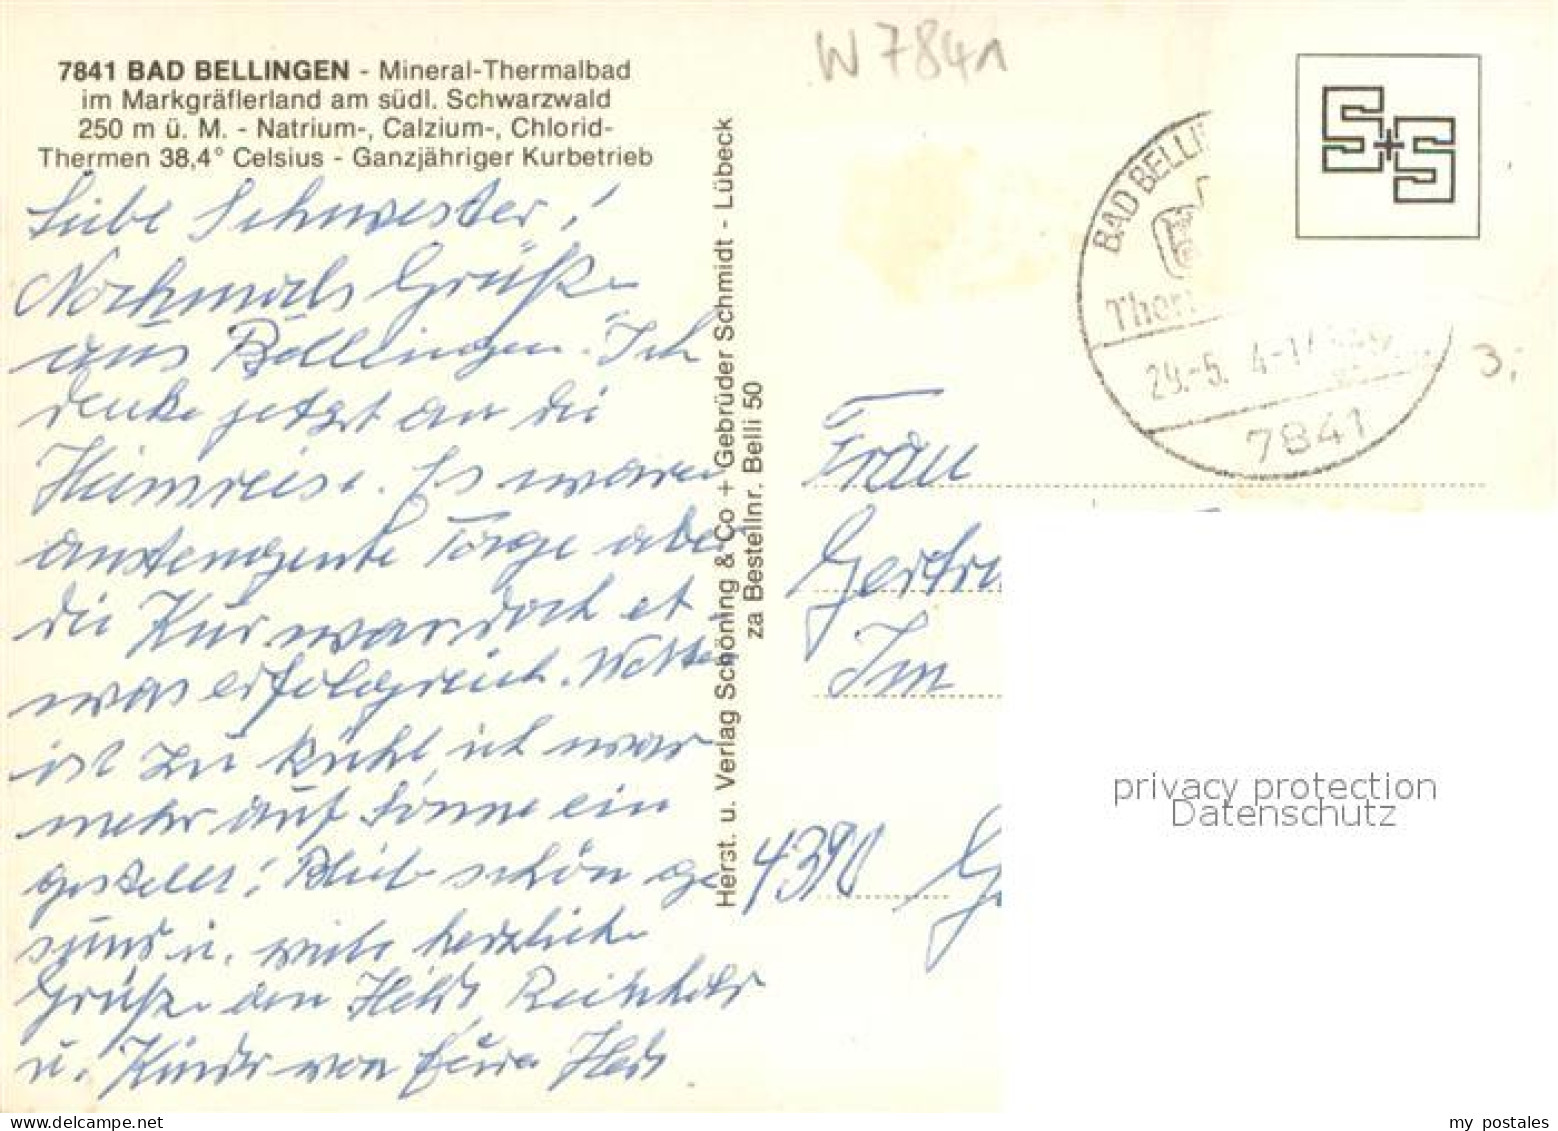 W 7841
7841 BAD BELLINGEN - Mineral-Thermalbad
im Markgräflerland am südl. Schwarzwald
250 m ü. M. - Natrium-, Calzium-, Chlorid-
Thermen 38,4° Celsius - Ganzjähriger Kurbetrieb
Liebe Schwester!
Nochmals Grüße
aus Bellingen. Ich
denke jetzt an die
Heimreise. Es waren
anstengente Tage aber
die Kur war doch et
was erfolgreich. Wetter
ist zu kühl, ich war
mehr auf Sonne ein
gestellt! Bleib schön ge
sund u. viele herzliche
Grüße an
u. Kinder von Eurer
Herst. u. Verlag Schöning & Co + Gebrüder Schmidt - Lübeck
za Bestellnr. Belli 50
S+S
BAD BELLI
Ther
29.-5.
7841
3,-
Frau
Gertru
Im
4390 G
privacy protection
Datenschutz
my postales